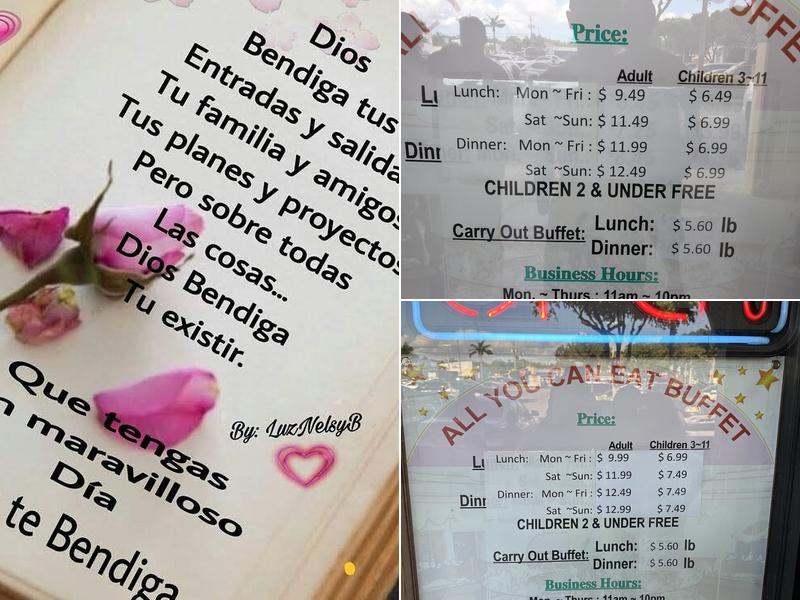 Dios
Bendiga tus
Entradas y salida
Tu familia y amigos
Tus planes y proyectos
Pero sobre todas
Las cosas...
Dios Bendiga
Tu existir.
By: LuzNelsyB
Que tengas
n maravilloso
Día
te Bendiga
Price:
Adult Children 3~11
Lunch: Mon ~ Fri : $ 9.49 $ 6.49
Sat ~Sun: $ 11.49 $ 6.99
Dinner: Mon ~ Fri : $ 11.99 $ 6.99
Sat ~Sun: $ 12.49 $ 6.99
CHILDREN 2 & UNDER FREE
Carry Out Buffet: Lunch: $ 5.60 lb
Dinner: $ 5.60 lb
Business Hours:
Mon. ~ Thurs : 11am ~ 10pm
ALL YOU CAN EAT BUFFET
Price:
Adult Children 3~11
Lunch: Mon ~ Fri : $ 9.99 $ 6.99
Sat ~Sun: $ 11.99 $ 7.49
Dinner: Mon ~ Fri : $ 12.49 $ 7.49
Sat ~Sun: $ 12.99 $ 7.49
CHILDREN 2 & UNDER FREE
Carry Out Buffet: Lunch: $ 5.60 lb
Dinner: $ 5.60 lb
Business Hours:
Mon. ~ Thurs : 11am ~ 10pm